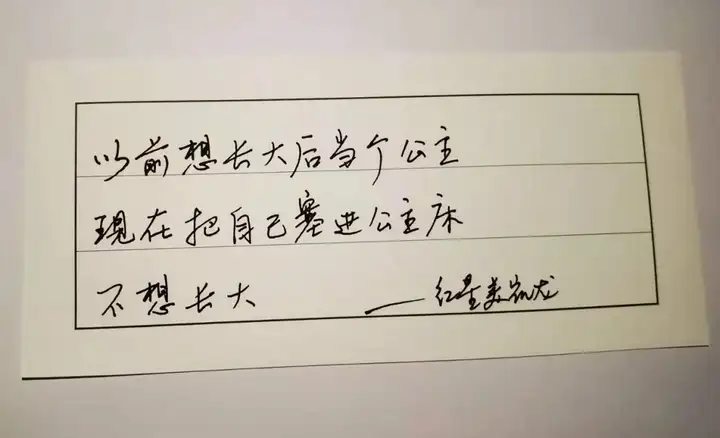 以前想长大后当个公主
现在把自己塞进公主床
不想长大 ——红星美凯龙